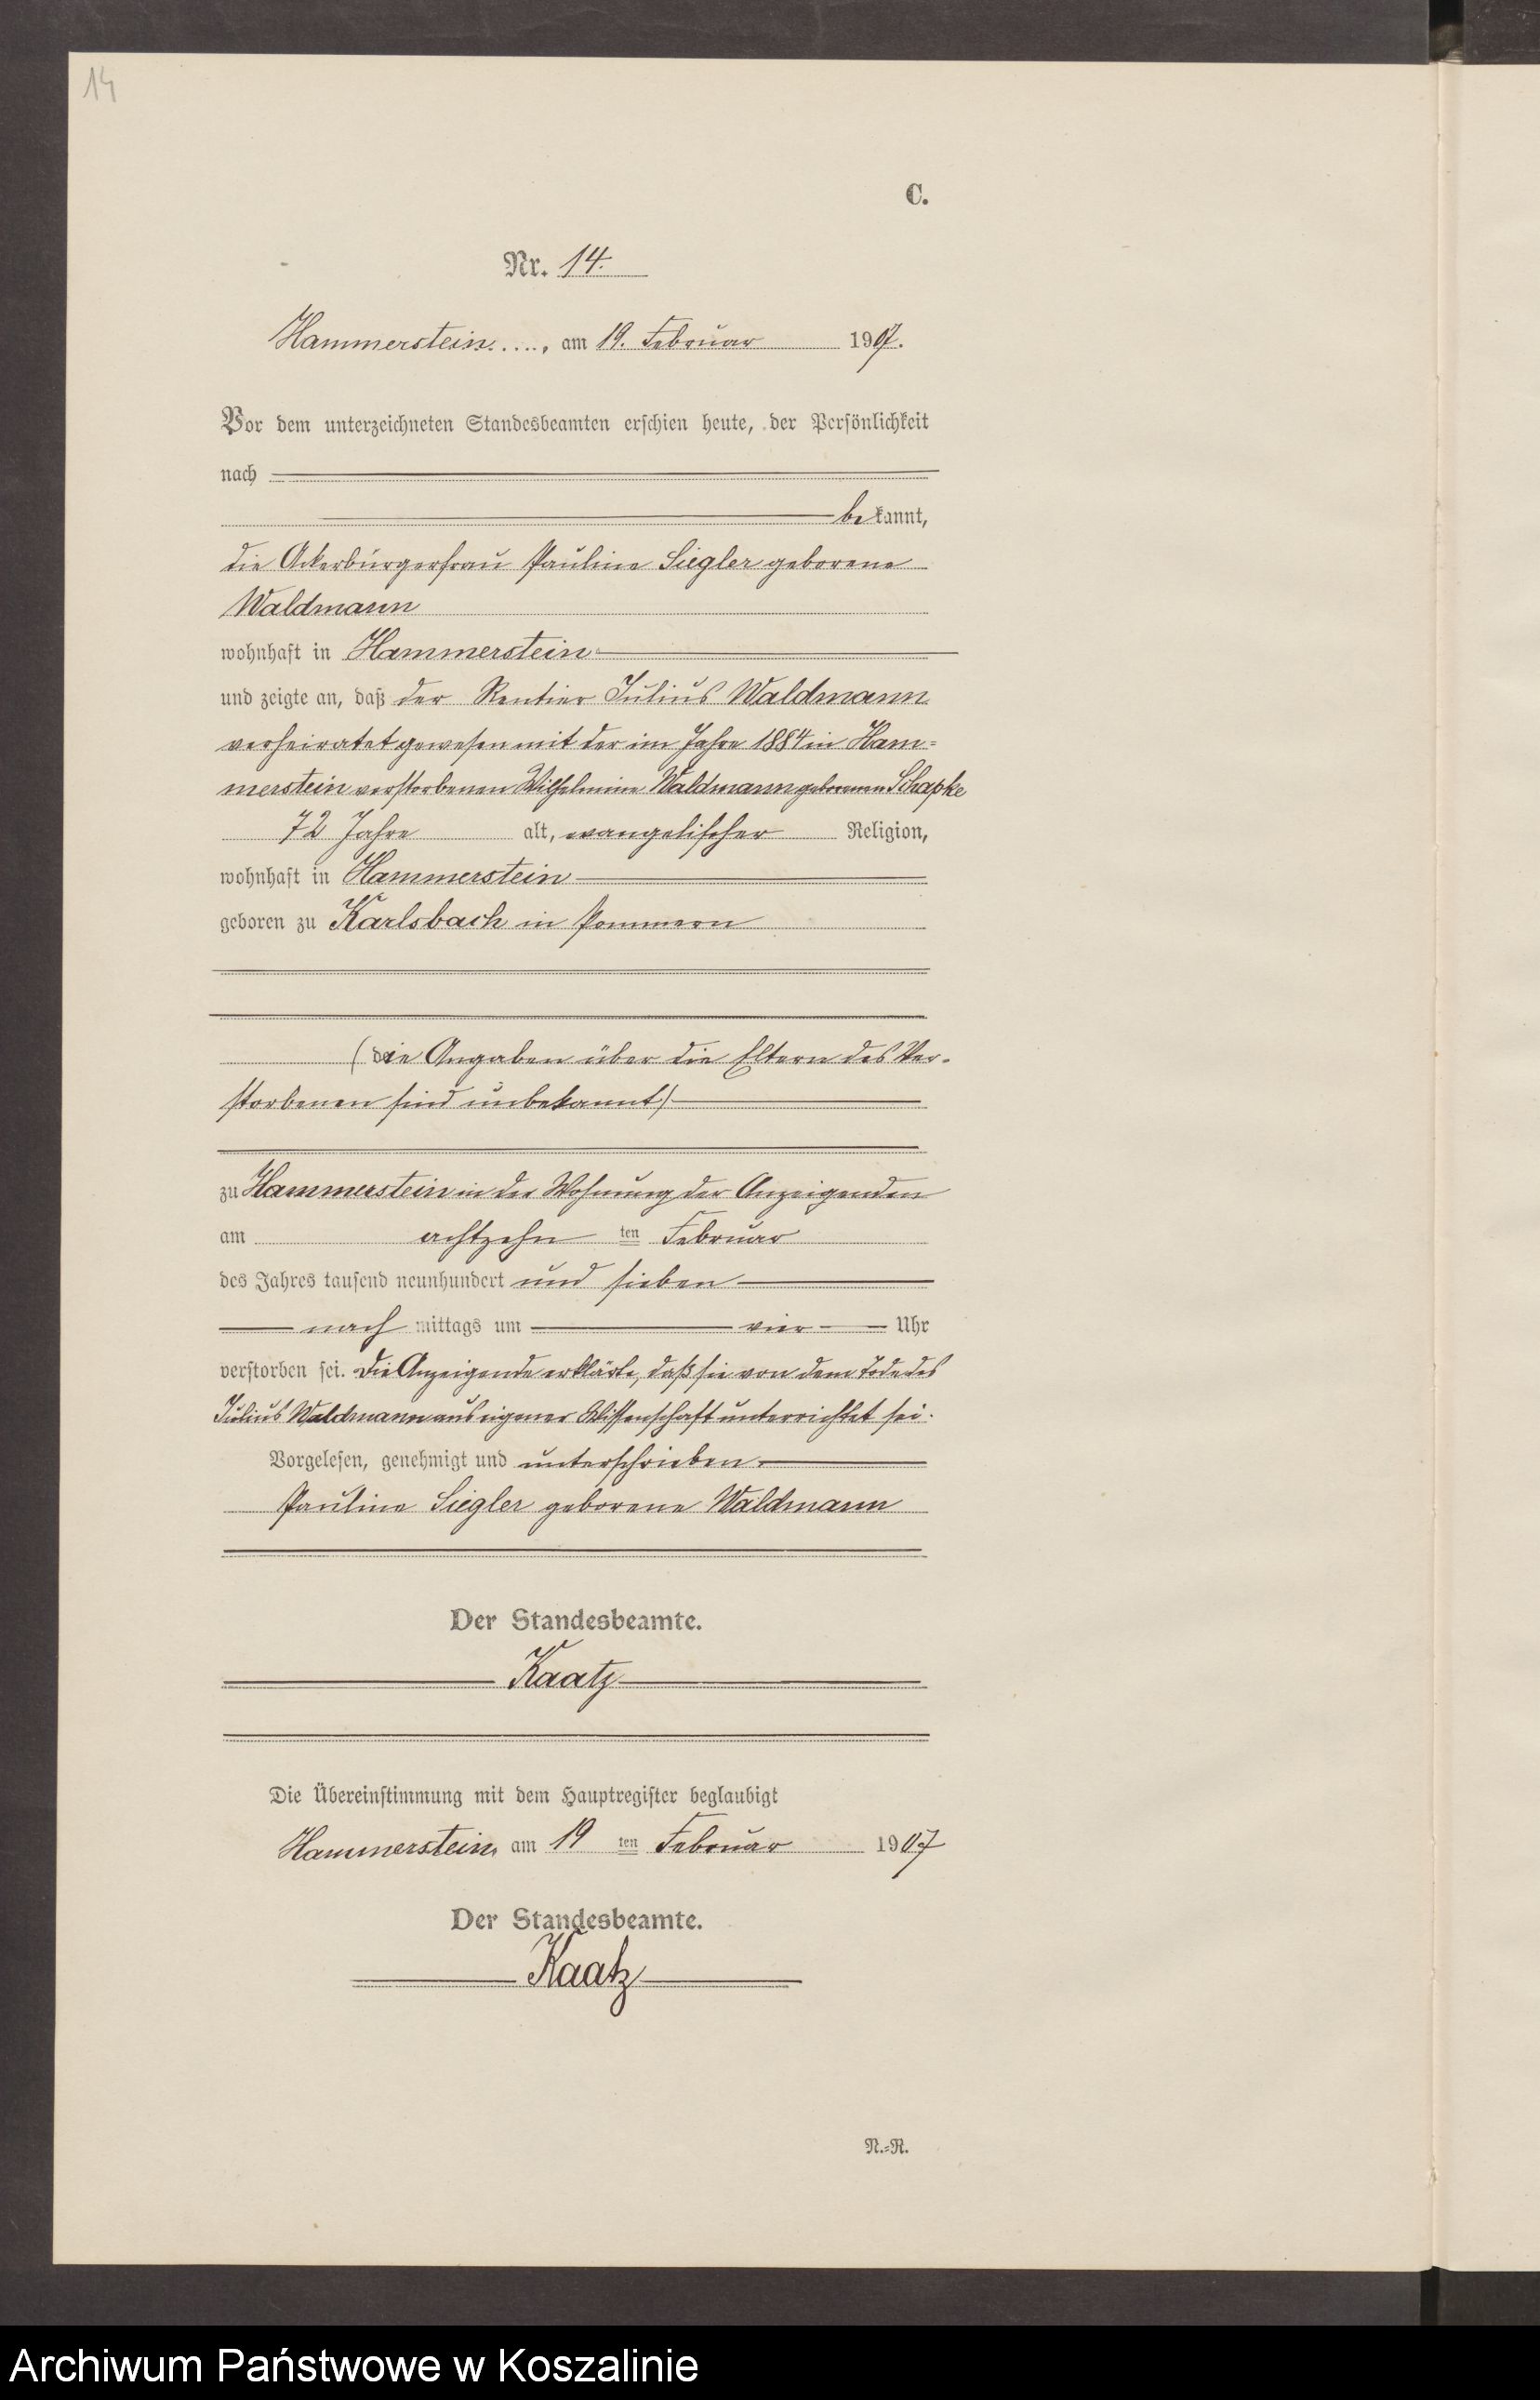 14
C.
Nr. 14.
Hammerstein....., am 19. Februar 1907.
Vor dem unterzeichneten Standesbeamten erschien heute, der Persönlichkeit
nach
bekannt,
die Ackerbürgerfrau Pauline Siegler geborene
Waldmann
wohnhaft in Hammerstein
und zeigte an, daß der Rentier Julius Waldmann
verheiratet gewesen mit der im Jahre 1884 in Ham=
merstein verstorbenen Wilhelmine Waldmann geborenen Schapke
72 Jahre alt, evangelischer Religion,
wohnhaft in Hammerstein
geboren zu Karlsbach in Pommern
(die Angaben über die Eltern des Ver-
storbenen sind unbekannt)
zu Hammerstein in der Wohnung der Anzeigenden
am achtzehn ten Februar
des Jahres tausend neunhundert und sieben
nach mittags um vier Uhr
verstorben sei. Die Anzeigende erklärte, daß sie von dem Tode des
Julius Waldmann aus eigener Wissenschaft unterrichtet sei.
Vorgelesen, genehmigt und unterschrieben
Pauline Siegler geborene Waldmann
Der Standesbeamte.
Kaatz
Die Übereinstimmung mit dem Hauptregister beglaubigt
Hammerstein, am 19 ten Februar 1907
Der Standesbeamte.
Kaatz
N.=R.
Archiwum Państwowe w Koszalinie